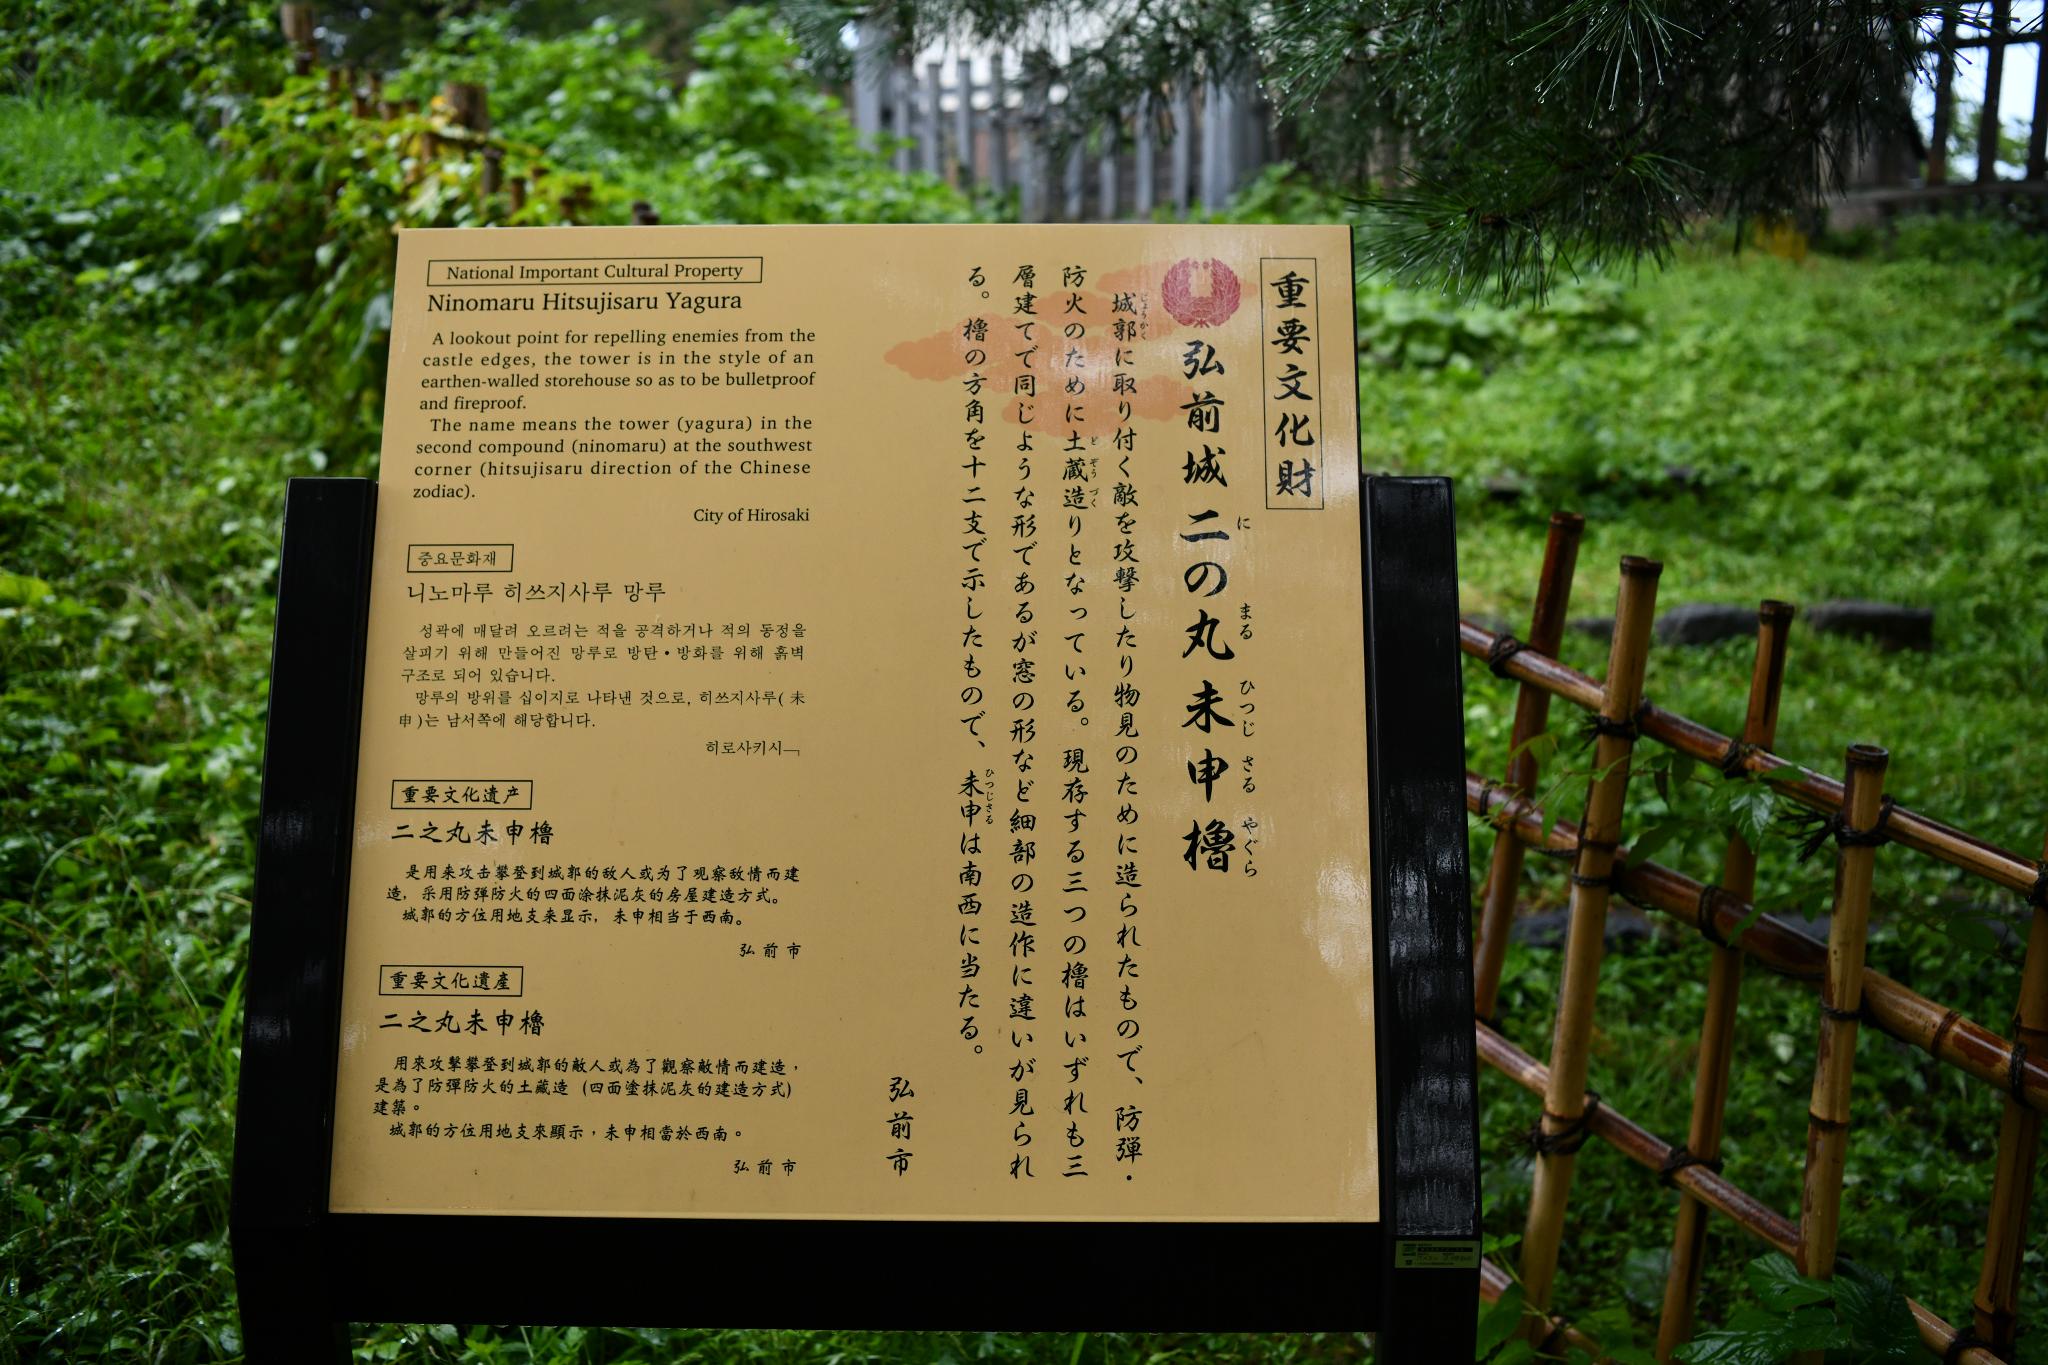 重要文化財
弘前城 二の丸未申櫓
に まる ひつじ さる やぐら
城郭に取り付く敵を攻撃したり物見のために造られたもので、防弾・
じょうかく
防火のために土蔵造りとなっている。現存する三つの櫓はいずれも三
どぞうづく
層建てで同じような形であるが窓の形など細部の造作に違いが見られ
る。櫓の方角を十二支で示したもので、未申は南西に当たる。
ひつじさる
弘前市
National Important Cultural Property
Ninomaru Hitsujisaru Yagura
A lookout point for repelling enemies from the
castle edges, the tower is in the style of an
earthen-walled storehouse so as to be bulletproof
and fireproof.
The name means the tower (yagura) in the
second compound (ninomaru) at the southwest
corner (hitsujisaru direction of the Chinese
zodiac).
City of Hirosaki
중요문화재
니노마루 히쓰지사루 망루
성곽에 매달려 오르려는 적을 공격하거나 적의 동정을
살피기 위해 만들어진 망루로 방탄・방화를 위해 흙벽
구조로 되어 있습니다.
망루의 방위를 십이지로 나타낸 것으로, 히쓰지사루( 未
申 )는 남서쪽에 해당합니다.
히로사키시ㄱ
重要文化遺产
二之丸未申櫓
是用来攻击攀登到城郭的敌人或为了观察敌情而建
造，采用防弹防火的四面涂抹泥灰的房屋建造方式。
城郭的方位用地支来显示，未申相当于西南。
弘前市
重要文化遺產
二之丸未申櫓
用來攻擊攀登到城郭的敵人或為了觀察敵情而建造，
是為了防彈防火的土藏造（四面塗抹泥灰的建造方式）
建築。
城郭的方位用地支來顯示，未申相當於西南。
弘前市